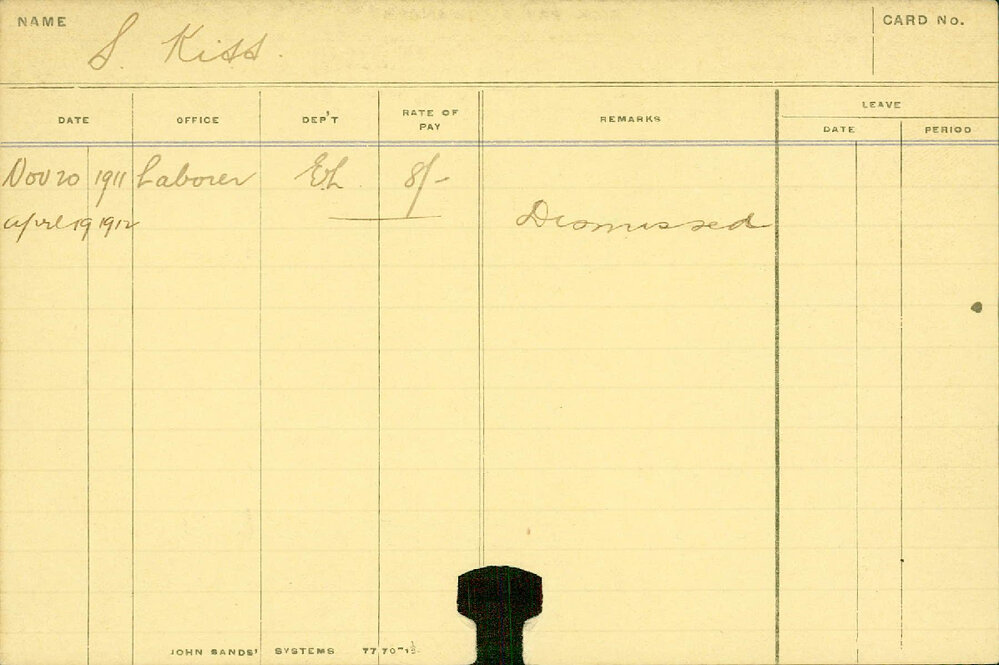 NAME S. Kiss. CARD No.
LEAVE
DATE OFFICE DEP'T RATE OF PAY REMARKS DATE PERIOD
Nov 20 1911 Laborer EL 8/-
April 19 1912 Dismissed
JOHN SANDS' SYSTEMS 77,70-1½